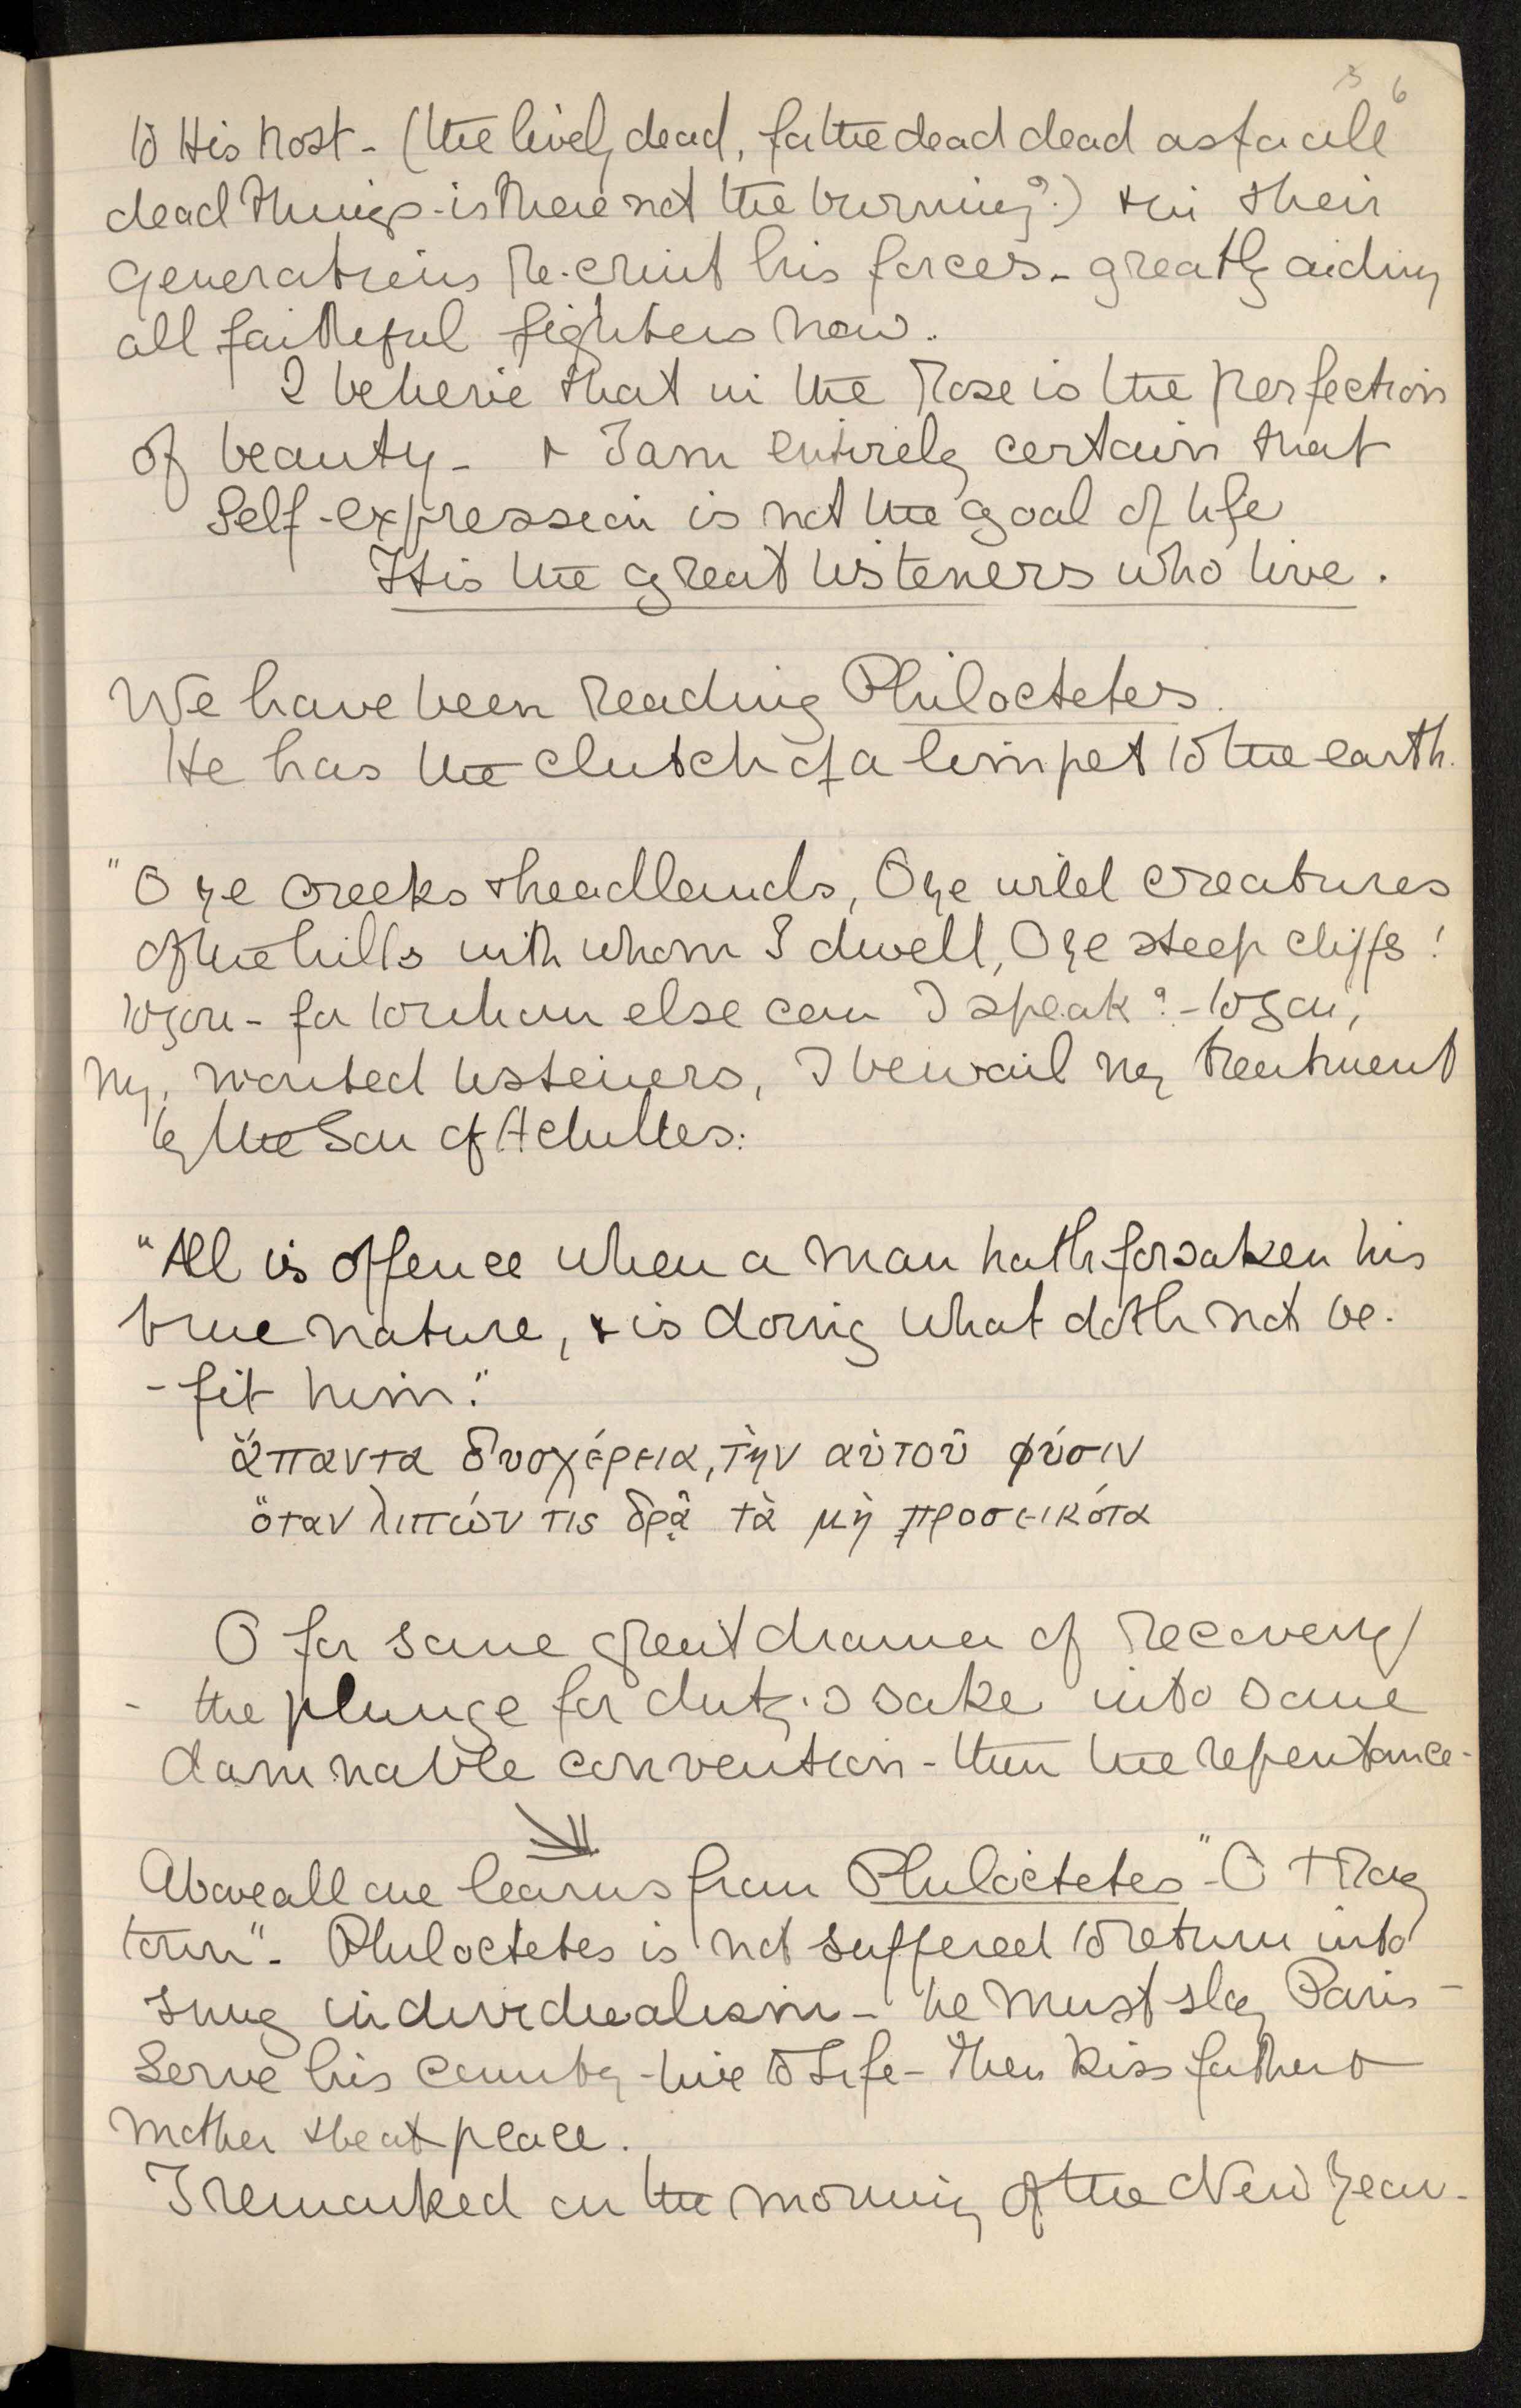 3 6
to His host - (the lively dead, for the dead dead as for all
dead things - is there not the burning?) & in their
generations re-cruit his forces - greatly aiding
all faithful fighters now.
I believe that in the Rose is the perfection
of beauty - & I am entirely certain that
Self-expression is not the goal of life
It is the great listeners who live.
We have been reading Philoctetes.
He has the clutch of a limpet to the earth.
"O ye creeks & headlands, O ye wild creatures
of the hills with whom I dwell, O ye steep cliffs!
to you - for to whom else can I speak? - to you,
my wonted listeners, I bewail my treatment
by the Son of Achilles:
"All is offence when a man hath forsaken his
true nature, & is doing what doth not be-
-fit him."
ἅπαντα δυσχέρεια, τὴν αὑτοῦ φύσιν
ὅταν λιπών τις δρᾷ τὰ μὴ προσεικότα
O for some great drama of recovery
- the plunge for duty's sake into some
damnable convention - then the repentance -
Above all one learns from Philoctetes - "O Troy
town" - Philoctetes is not suffered to return into
snug individualism - he must slay Paris -
Serve his country - live to Life - then kiss father &
mother & be at peace.
I remarked on the morning of the New Year -